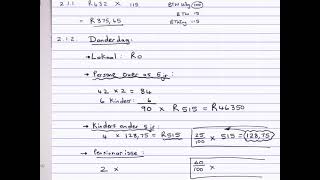 2.1.1 R432 x 115 BTW Uitg 100
= R375,65 BTW 15
BTW Ing 115
2.1.2. Donderdag:
→ Lokaal: R0
→ Persone over as 5 jr:
42 x 2 = 84
6 Kinders: 6
90 x R515 = R46350
→ Kinders onder 5 jr:
4 x 128,75 = R515 25/100 x 515 = 128,75
→ Pensionarisse:
2 x 60/100 x